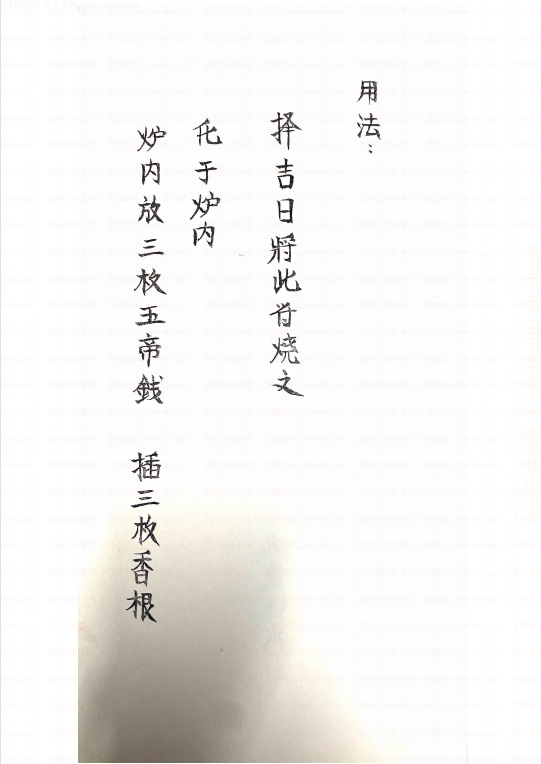 用法：
择吉日將此符燒文
化于炉内
炉内放三枚五帝錢 插三枚香根